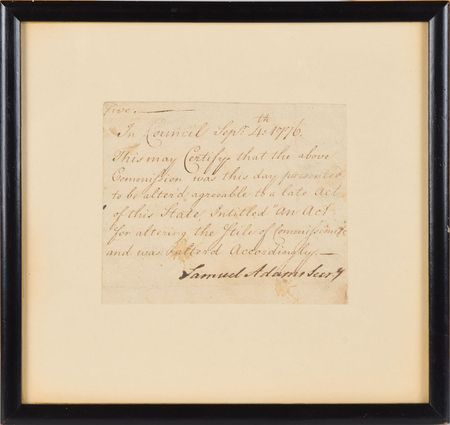 five.—
In Council Sepr. 4th: 1776.
This may Certify, that the above
Commission was this day presented
to be alter'd agreable to a late Act
of this State, Intitled "An Act
for altering the Stile of Commissions &c
and was Alterd Accordingly.—
Samuel Adams Secry